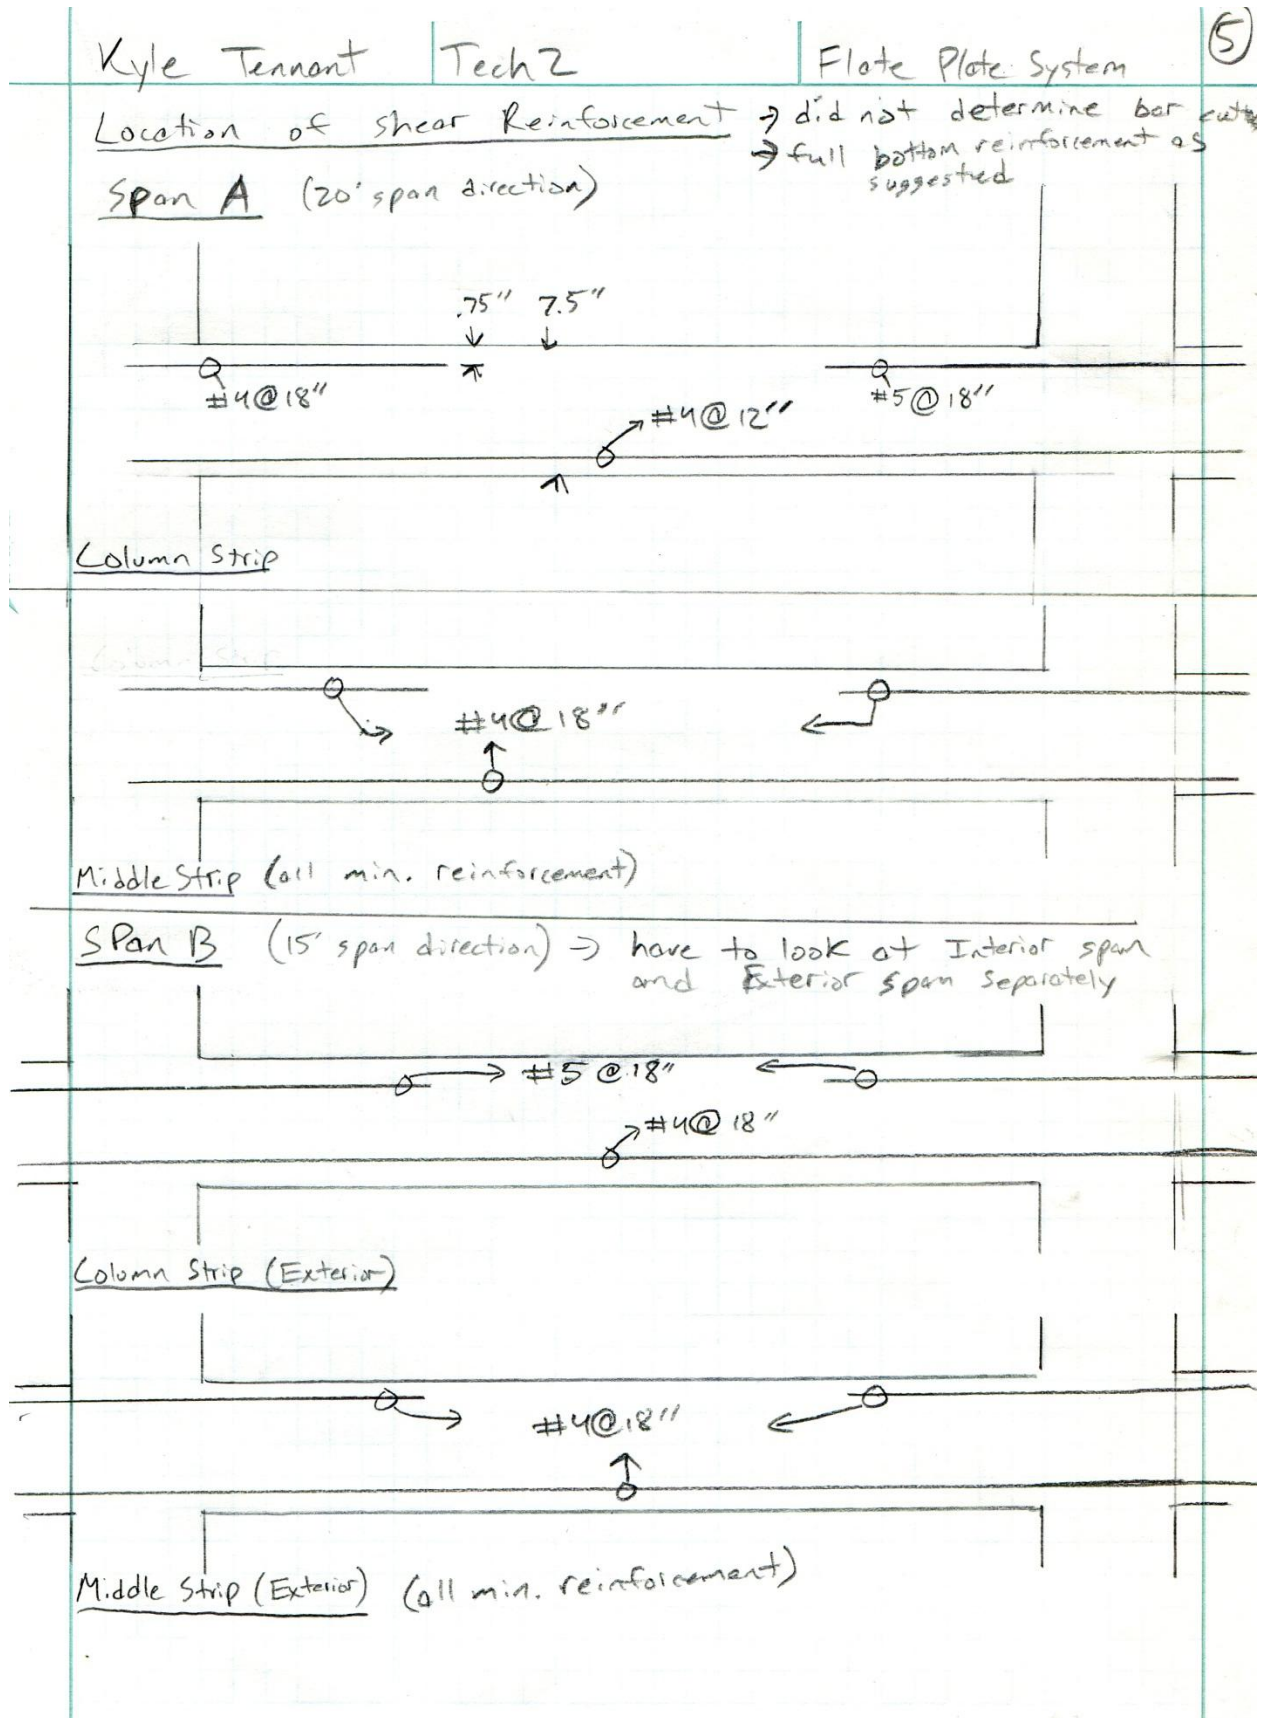 Kyle Tennant Tech 2 Flate Plate System 5
Location of shear Reinforcement → did not determine bar
→ full bottom reinforcement as
suggested
Span A (20' span direction)
.75" 7.5"
#4@18" #5@18"
#4@12"
Column Strip
Column Strip
#4@18"
Middle Strip (all min. reinforcement)
Span B (15' span direction) → have to look at Interior span
and Exterior span separately
#5@18"
#4@18"
Column Strip (Exterior)
#4@18"
Middle Strip (Exterior) (all min. reinforcement)